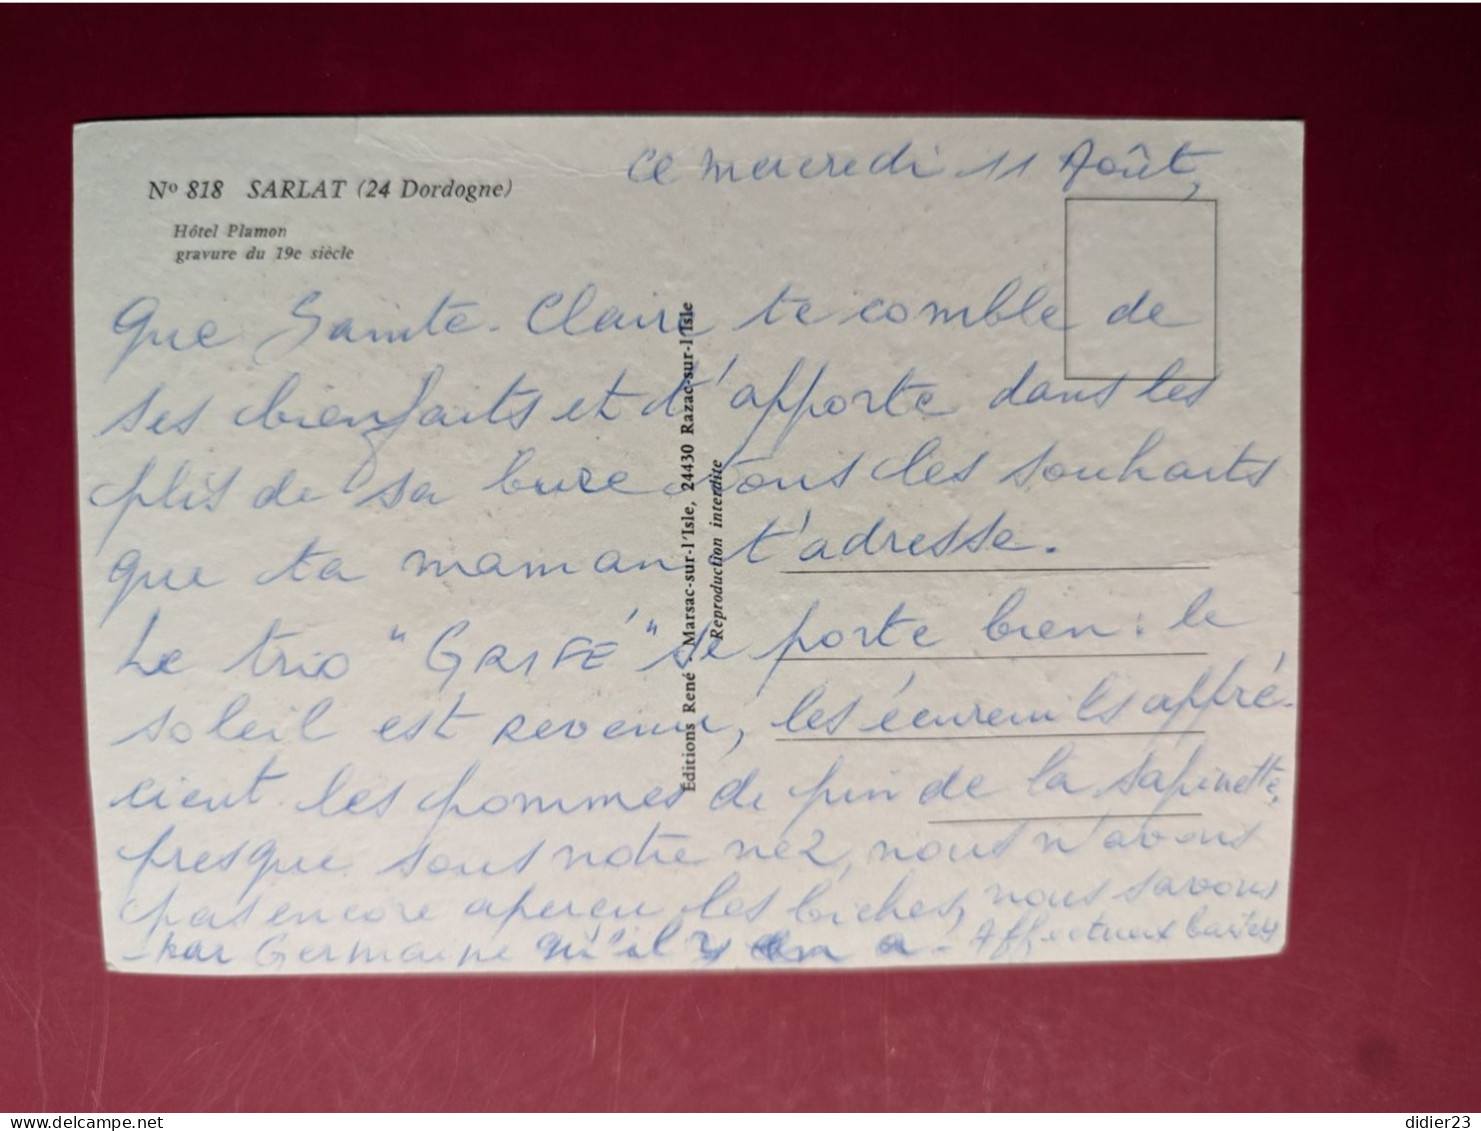 ce mercredi 11 Août,
Nº 818 SARLAT (24 Dordogne)
Hôtel Plamon
gravure du 19e siècle
Que Sainte-Claire te comble de
ses bienfaits et t'apporte dans les
plis de sa bure tous les souhaits
que ta maman t'adresse.
Le trio "GRIFÉ" se porte bien : le
soleil est revenu, les écureuils appré-
cient les pommes de pin de la sapinette,
presque sous notre nez, nous n'avons
pas encore aperçu les biches, nous savons
par Germaine qu'il y en a. Affectueux baisers
Éditions René - Marsac-sur-l'Isle, 24430 Razac-sur-l'Isle
Reproduction interdite
didier23